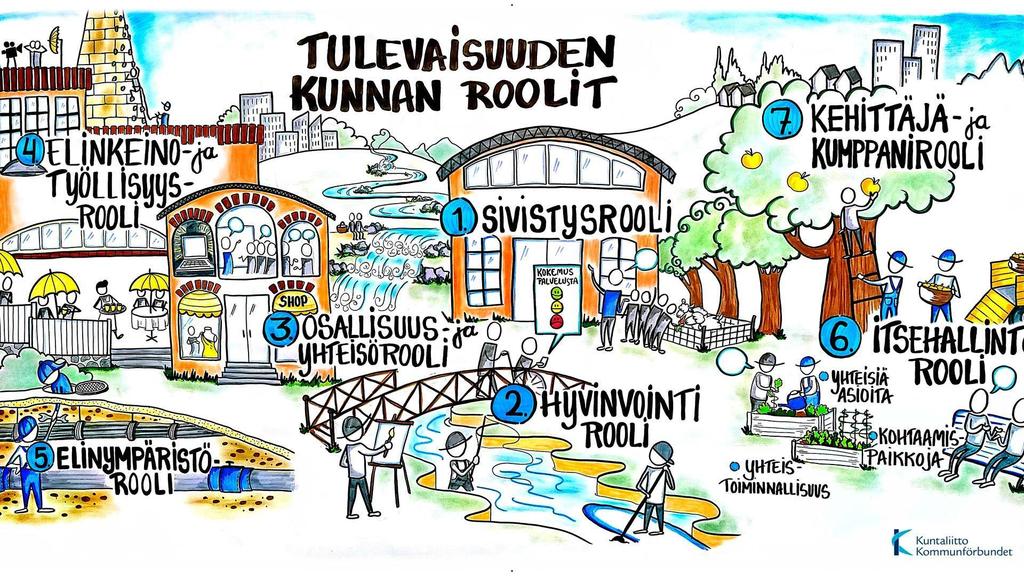 TULEVAISUUDEN
KUNNAN ROOLIT
4 ELINKEINO- ja
TYÖLLISYYS-
ROOLI
1. SIVISTYSROOLI
7. KEHITTÄJÄ- ja
KUMPPANIROOLI
KOKEMUS
PALVELUSTA
SHOP
3. OSALLISUUS- ja
YHTEISÖROOLI
2. HYVINVOINTI
ROOLI
5 ELINYMPÄRISTÖ-
ROOLI
6. ITSEHALLINTO
ROOLI
• YHTEISIÄ
ASIOITA
• KOHTAAMIS-
PAIKKOJA
• YHTEIS-
TOIMINNALLISUUS
Kuntaliitto
Kommunförbundet